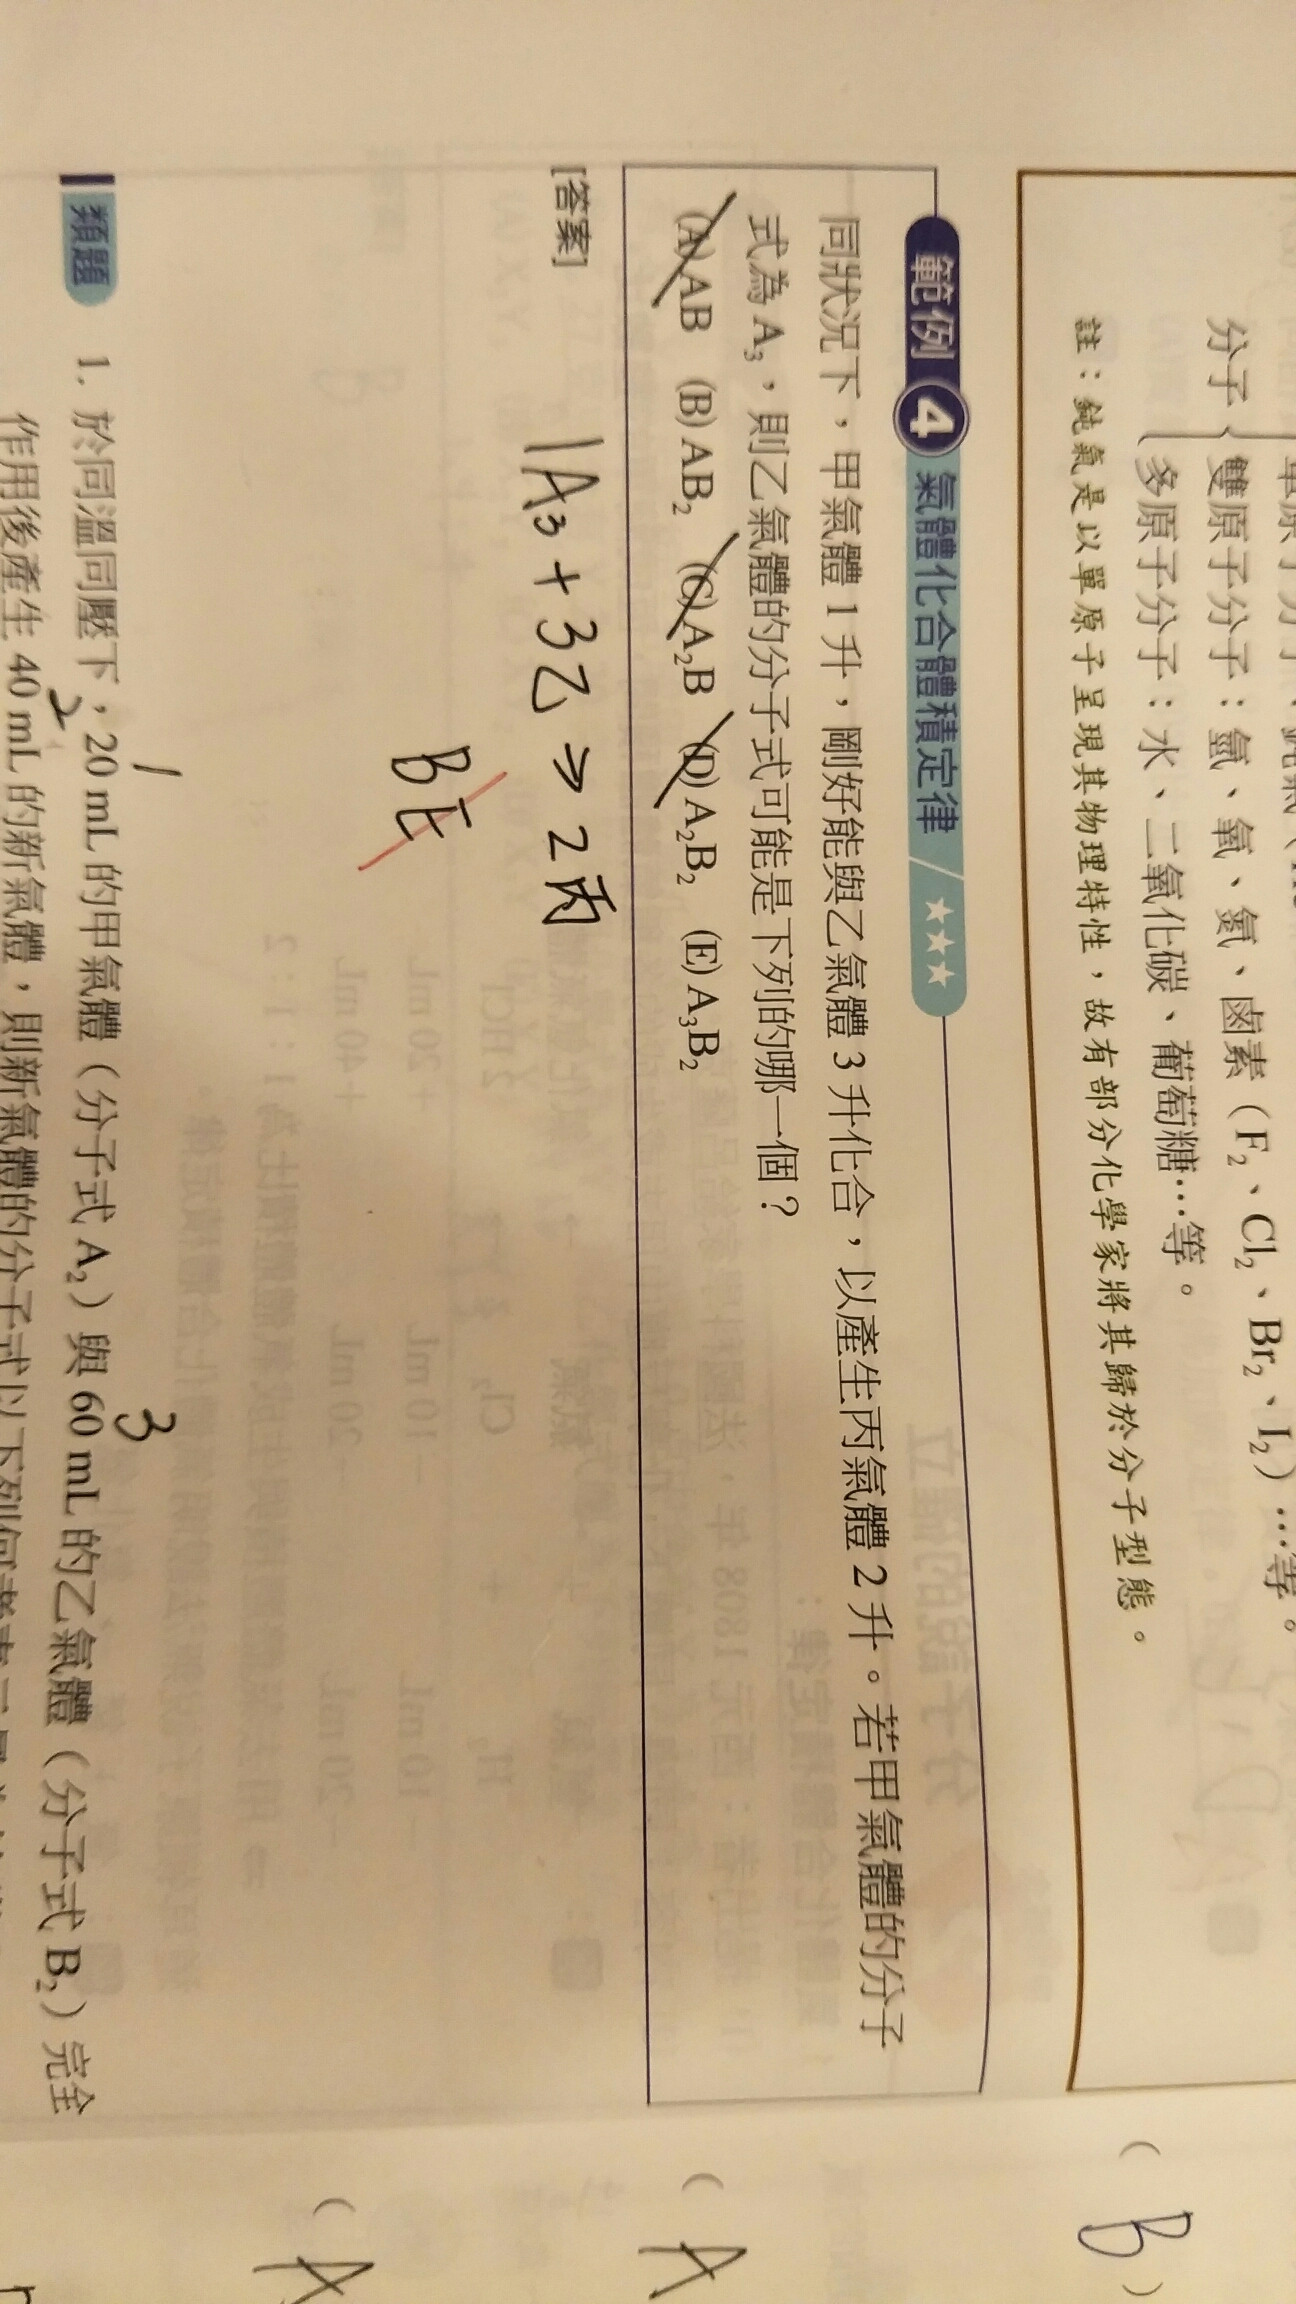 分子
雙原子分子：氫、氧、氮、鹵素（F₂、Cl₂、Br₂、I₂）…等。
多原子分子：水、二氧化碳、葡萄糖…等。
註：鈍氣是以單原子呈現其物理特性，故有部分化學家將其歸於分子型態。
( B )
範例 4 氣體化合體積定律 / ★★★
同狀況下，甲氣體 1 升，剛好能與乙氣體 3 升化合，以產生丙氣體 2 升。若甲氣體的分子
式為 A₃，則乙氣體的分子式可能是下列的哪一個？
(A) AB (B) AB₂ (C) A₂B (D) A₂B₂ (E) A₃B₂
( A
[答案]
1A₃ + 3乙 → 2丙
B E
( A
類題 1. 於同溫同壓下，20 mL 的甲氣體（分子式 A₂）與 60 mL 的乙氣體（分子式 B₂）完全
1
3
作用後產生 40 mL 的新氣體，則新氣體的分子式以下列何者表示
2